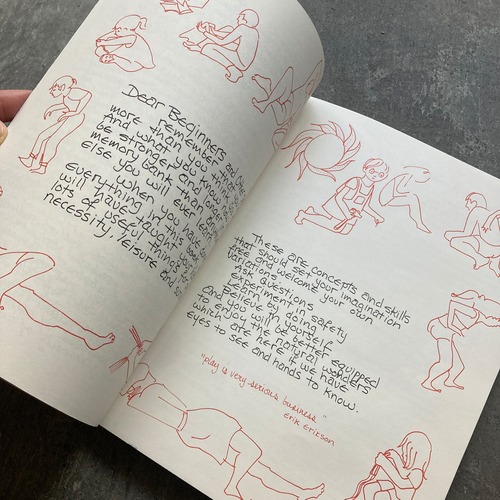 Dear Beginners and
more remember that you
And what you think
be strange, you know
memory bank and longer
else you will ever learn
than
Even when you have
everything in this book
will have taught you
lots of useful things
necessity, leisure and
These are concepts and skills
that should set your imagination
free and welcome your own
variations
Ask questions
experiment in safety
Learn by doing
and Believe in yourself
and you will be better equipped
to enjoy the natural wonders
which are here if we have
eyes to see and hands to know.
"play is very serious business"
Erik Erikson